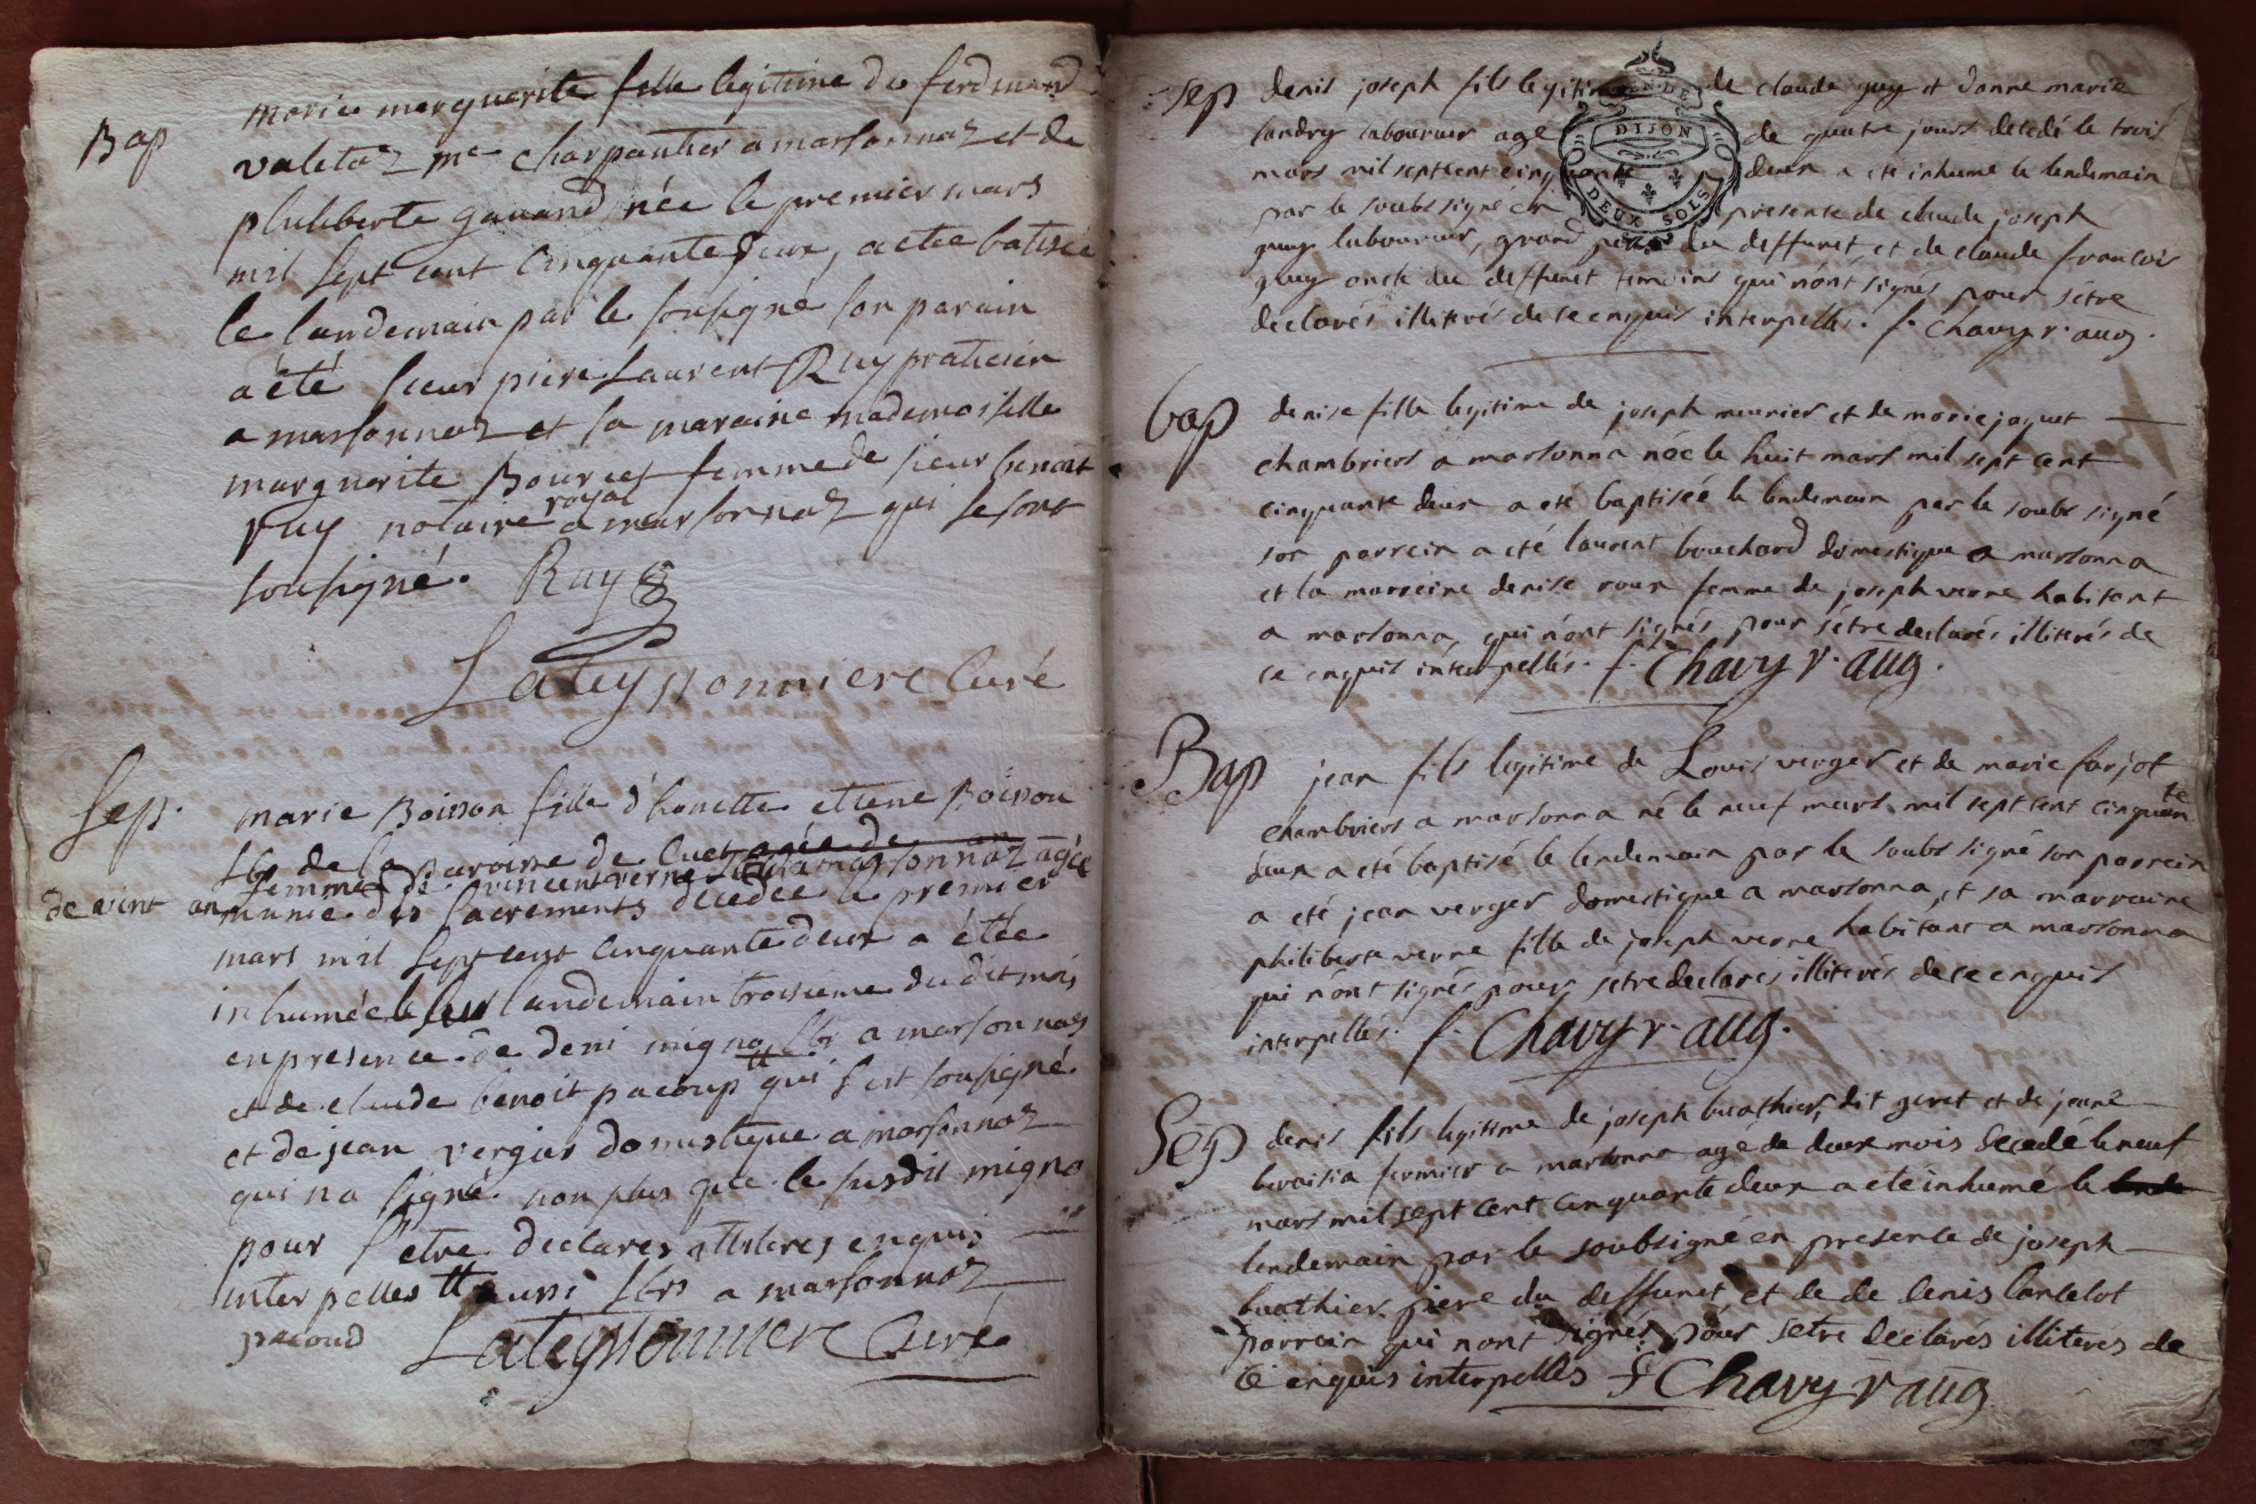 Bap
marie marguerite fille legitime de ferdinand
valetaz me charpantier a marsonnaz et de
philiberte gauand née le premier mars
mil sept cent cinquante deux, a etee batisée
le landemain par le sousigné son parain
a été sieur piere Laurent Ruy praticien
a marsonnaz et sa maraine mademoiselle
marguerite Bourcet femme de sieur benoit
ruy notaire royal a marsonnaz qui se sont
sousigné. Ruy
Lateyssonniere Curé
Sep.
marie Boisson fille d'honette etiene Boisson
lbr de la paroisse de Cuet agée de an
femme de vincent verne lbr a marsonnaz agée
de vint an munie des sacrements decedée le premier
mars mil sept cent cinquante deux a étée
inhumée le landemain troisieme du dit mois
en presence de deni migno lbr a marsonnaz
et de claude benoit pacoup tt qui s'est sousigné
et de jean vergier domestique a marsonnaz
qui na signé non plus que le susdit migno
pour s'etre declares illiteres enquis
interpelles tt aussi lbrs a marsonnaz
pacoud Lateyssonniere Curé
Sep
denis joseph fils legitime de claude guy et danne marie
landry laboureur agé de quatre jours decedé le trois
mars mil sept cent cinquante deux a eté inhumé le lendemain
par le soubsigné en presense de claude joseph
guy laboureur, grand pere du deffunct et de claude francois
guy oncle du deffunct temoins qui n'ont signés pour s'étre
declarés illiterés de ce enquis interpellés. f. Chavy r. aug.
bap
denise fille legitime de joseph meunier et de marie jaquet
chambriers a marsonna née le huit mars mil sept cent
cinquante deux a eté baptiséé le lendemain par le soubs signé
son parrein a eté laurent bouchard domestique a marsonna
et la marreine denise roux femme de joseph verne habitant
a marsonna, qui n'ont signés pour s'étre declarés illiterés de
ce enquis interpellés. f. Chavy r. aug.
Bap
jean fils legitime de Louis verger et de marie farjot
chambriers a marsonna né le neuf mars mil sept cent cinquante
deux a eté baptisé le lendemain par le soubs signé son parrein
a eté jean verger domestique a marsonna, et sa marraine
philiberte verne fille de joseph verne habitant a marsonna
qui n'ont signés pour setre declarés illiterés de ce enquis
interpellés. f. Chavy r. aug.
Sep
denis fils legitime de joseph buathier, dit geret et de jeane
beraisia fermier a marsonna agé de deux mois decedé le neuf
mars mil sept cent cinquante deux a eté inhumé le
lendemain par le soubsigné en presence de joseph
buathier pere du deffunct et de de denis lancelot
parrein qui nont signés pour setre declarés illiterés de
ce enquis interpellés f Chavy r aug
DIJON
DEUX SOLS